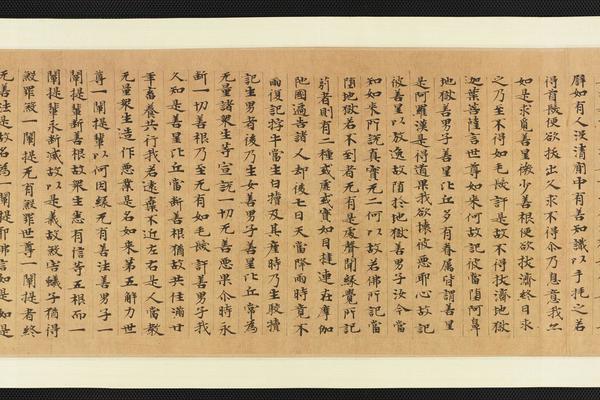 譬如有人没清廁中有善知識以手撓之若
得首髮便欲拔出久求不得尒乃息意我亦
如是求覓善星微少善根便欲拔濟終日求
之乃至不得如毛髮許是故不得拔濟地獄
迦葉菩薩言世尊如來何故記彼當墮阿鼻
地獄善男子善星比丘多有眷屬皆謂善星
是阿羅漢是得道果我欲壞彼惡耶心故記
彼善星以放逸故墮於地獄善男子汝今當
知如來所說真實无二何以故若佛所記當
墮地獄若不到者无有是處聲聞緣覺所記
莂者則有二種或虛或實如目揵連在摩伽
陁國遍告諸人却後七日天當降雨時竟不
雨復記㹀牛當生白犢及其產時乃生駮犢
記生男者後乃生女善男子善星比丘常為
无量諸眾生等宣說一切无善惡果尒時永
斷一切善根乃至无有如毛髮許善男子我
久知是善星比丘當斷善根猶故共住滿廿
年畜養共行我若遠棄不近左右是人當教
无量眾生造作惡業是名如來第五解力世
尊一闡提輩以何因緣无有善法善男子一
闡提輩斷善根故眾生悉有信等五根而一
闡提輩永斷滅故以是義故殺害蟻子猶得
殺罪殺一闡提无有殺罪世尊一闡提者終
无善法是故名為一闡提耶佛言如是如是